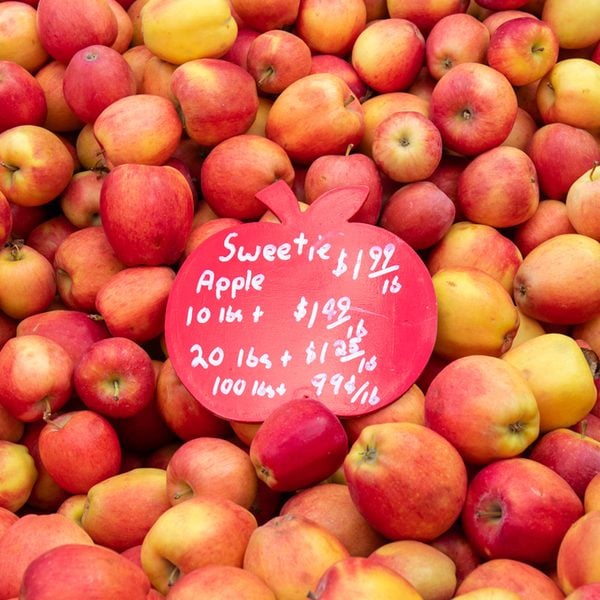 Sweetie $1 99/lb
Apple
10 lbs + $1 49/lb
20 lbs + $1 25/lb
100 lbs + 99¢/lb